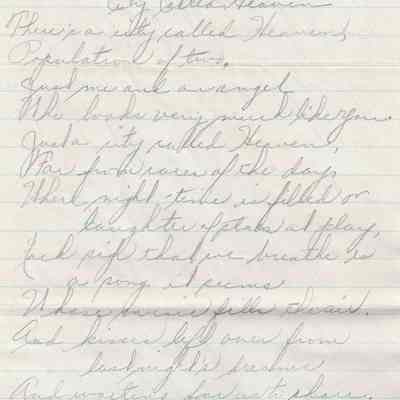 City Called Heaven
There's a city called Heaven,
Population of two,
Just me and an angel
Who looks very much like you.
Just a city called Heaven,
Far from cares of the day,
Where night-time is filled
laughter of stars at play,
Each sigh that we breathe is
a song it seems
Whose music fills the air.
And kisses left over from
last night's dreams
And waiting for us to share.